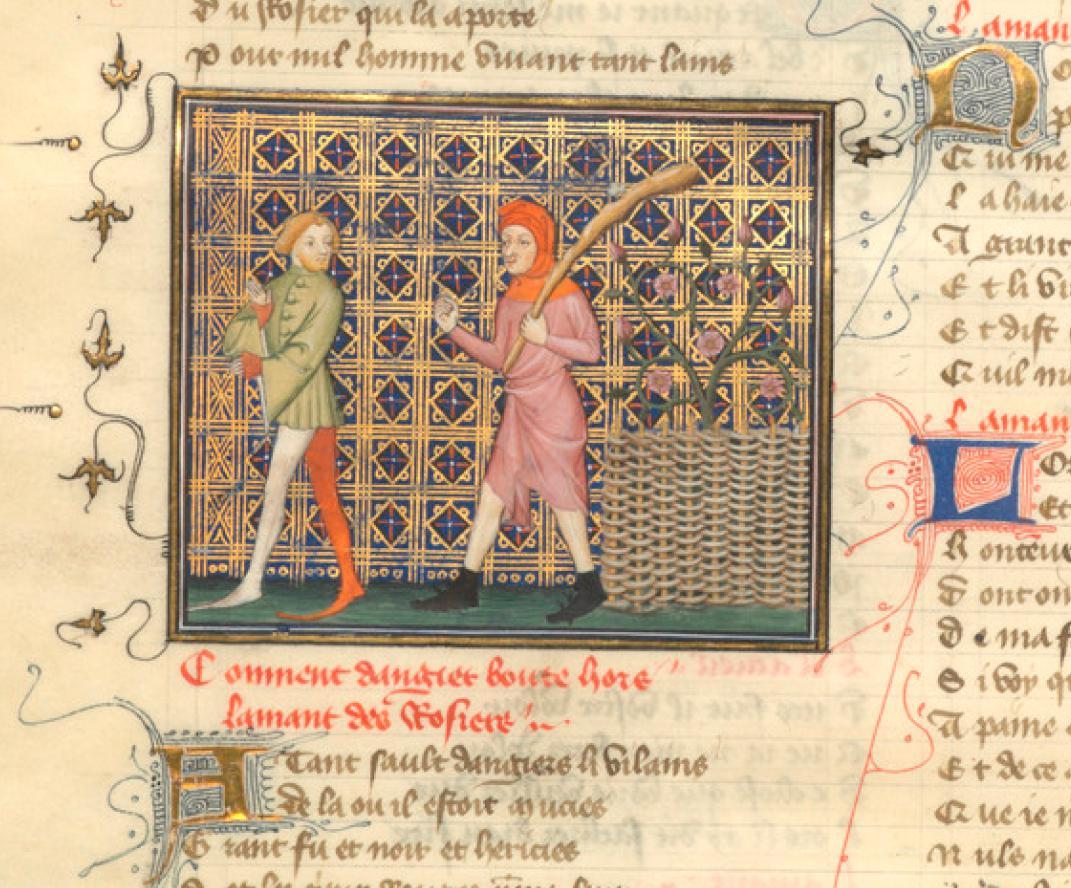 Du Rosier qui la aporte
Pour nul homme vivant tant lains
Comment dangier boute hors
lamant des Rosiers
Atant sault dangiers li vilains
De la ou il estoit muciés
Grant fu et noir et hericies
Lamant
Qui me
La haie
A grant
Et li vi
Et dist
Quil
Lamant
Et
De ma f
Si voy q
A paine
Et de ce
Que ie n
Nuls na